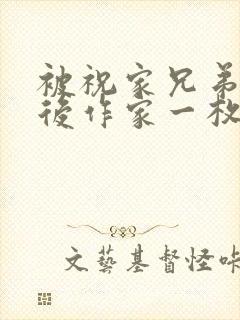 被祝家兄弟
後作家一枚
文藝基督怪咔